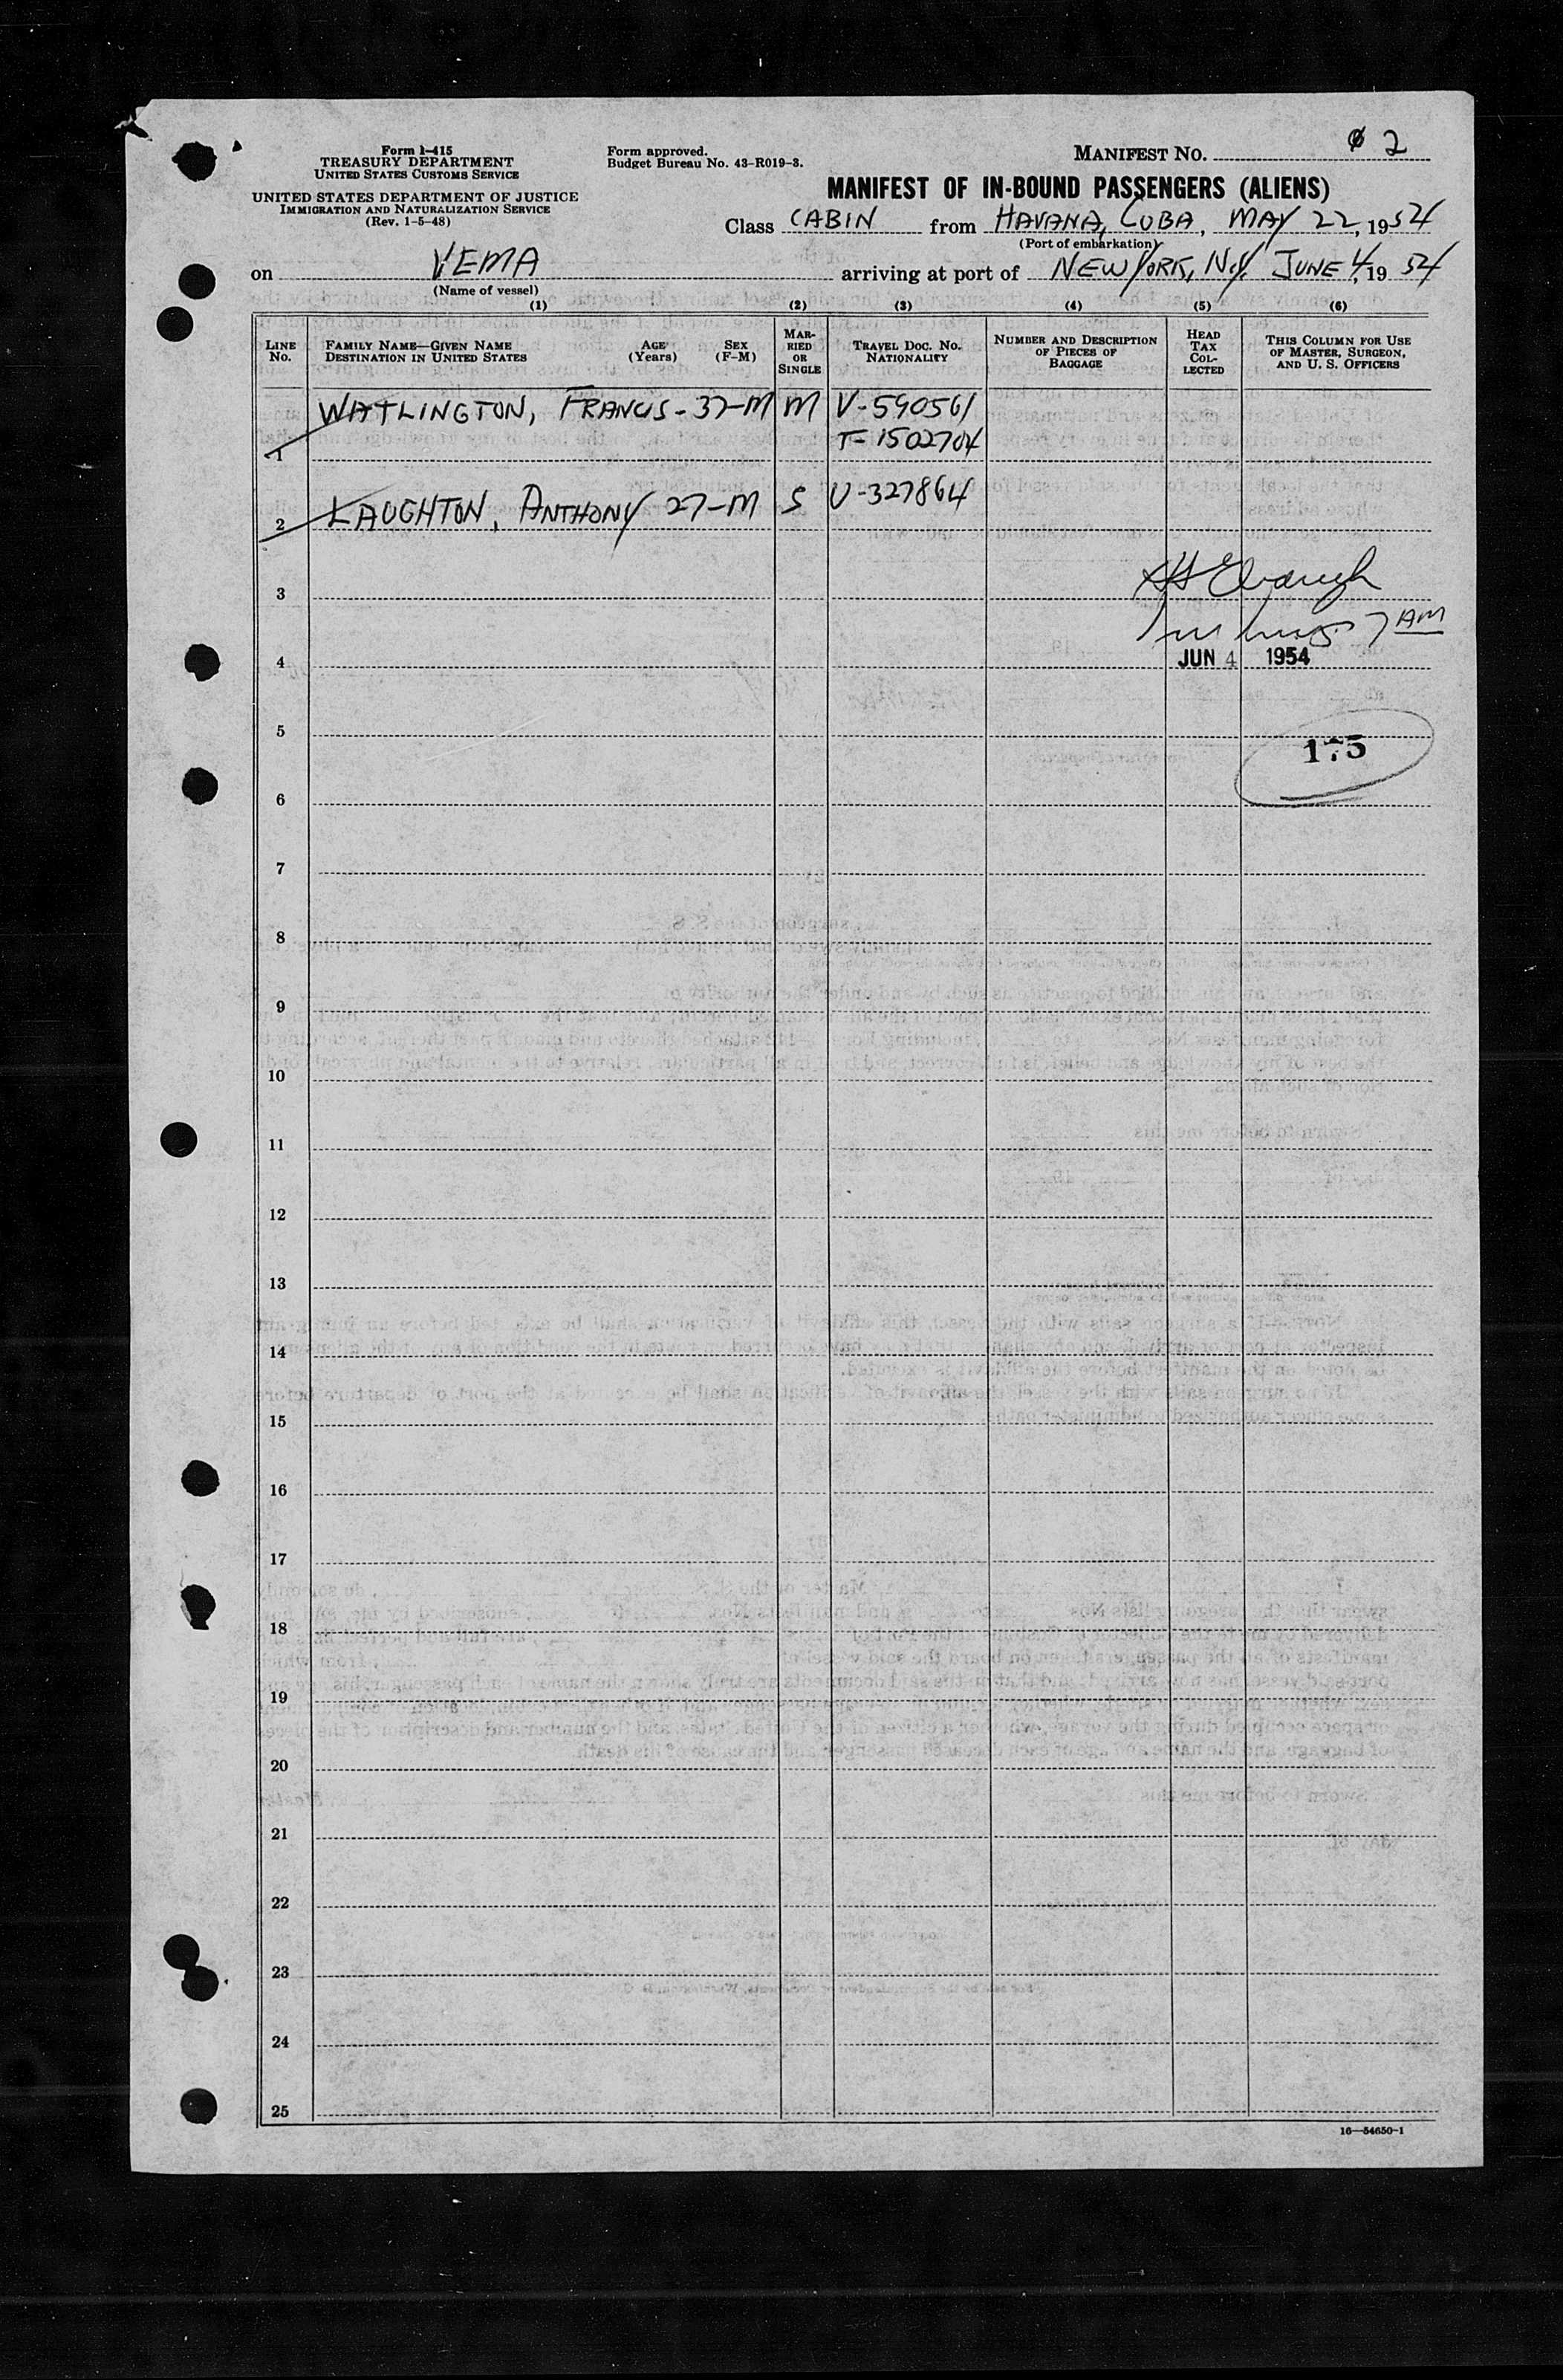 Form I-415
TREASURY DEPARTMENT
UNITED STATES CUSTOMS SERVICE
UNITED STATES DEPARTMENT OF JUSTICE
IMMIGRATION AND NATURALIZATION SERVICE
(Rev. 1-5-48)
Form approved.
Budget Bureau No. 43-R019-3.
MANIFEST NO. 2
MANIFEST OF IN-BOUND PASSENGERS (ALIENS)
Class CABIN from HAVANA, CUBA, MAY 22, 1954
(Port of embarkation)
on VEMA arriving at port of NEW YORK, N.Y. JUNE 4, 19 54
(Name of vessel)
(1) (2) (3) (4) (5) (6)
LINE No.
FAMILY NAME—GIVEN NAME
DESTINATION IN UNITED STATES
AGE (Years)
SEX (F-M)
MARRIED OR SINGLE
TRAVEL DOC. NO.
NATIONALITY
NUMBER AND DESCRIPTION OF PIECES OF BAGGAGE
HEAD TAX COLLECTED
THIS COLUMN FOR USE OF MASTER, SURGEON, AND U. S. OFFICERS
WATLINGTON, FRANCIS - 37-M M V-590561
1 T-1502704
2 LAUGHTON, ANTHONY 27-M S V-327864
3
7 AM
4 JUN 4 1954
5
175
6
7
8
9
10
11
12
13
14
15
16
17
18
19
20
21
22
23
24
25
16—54650-1